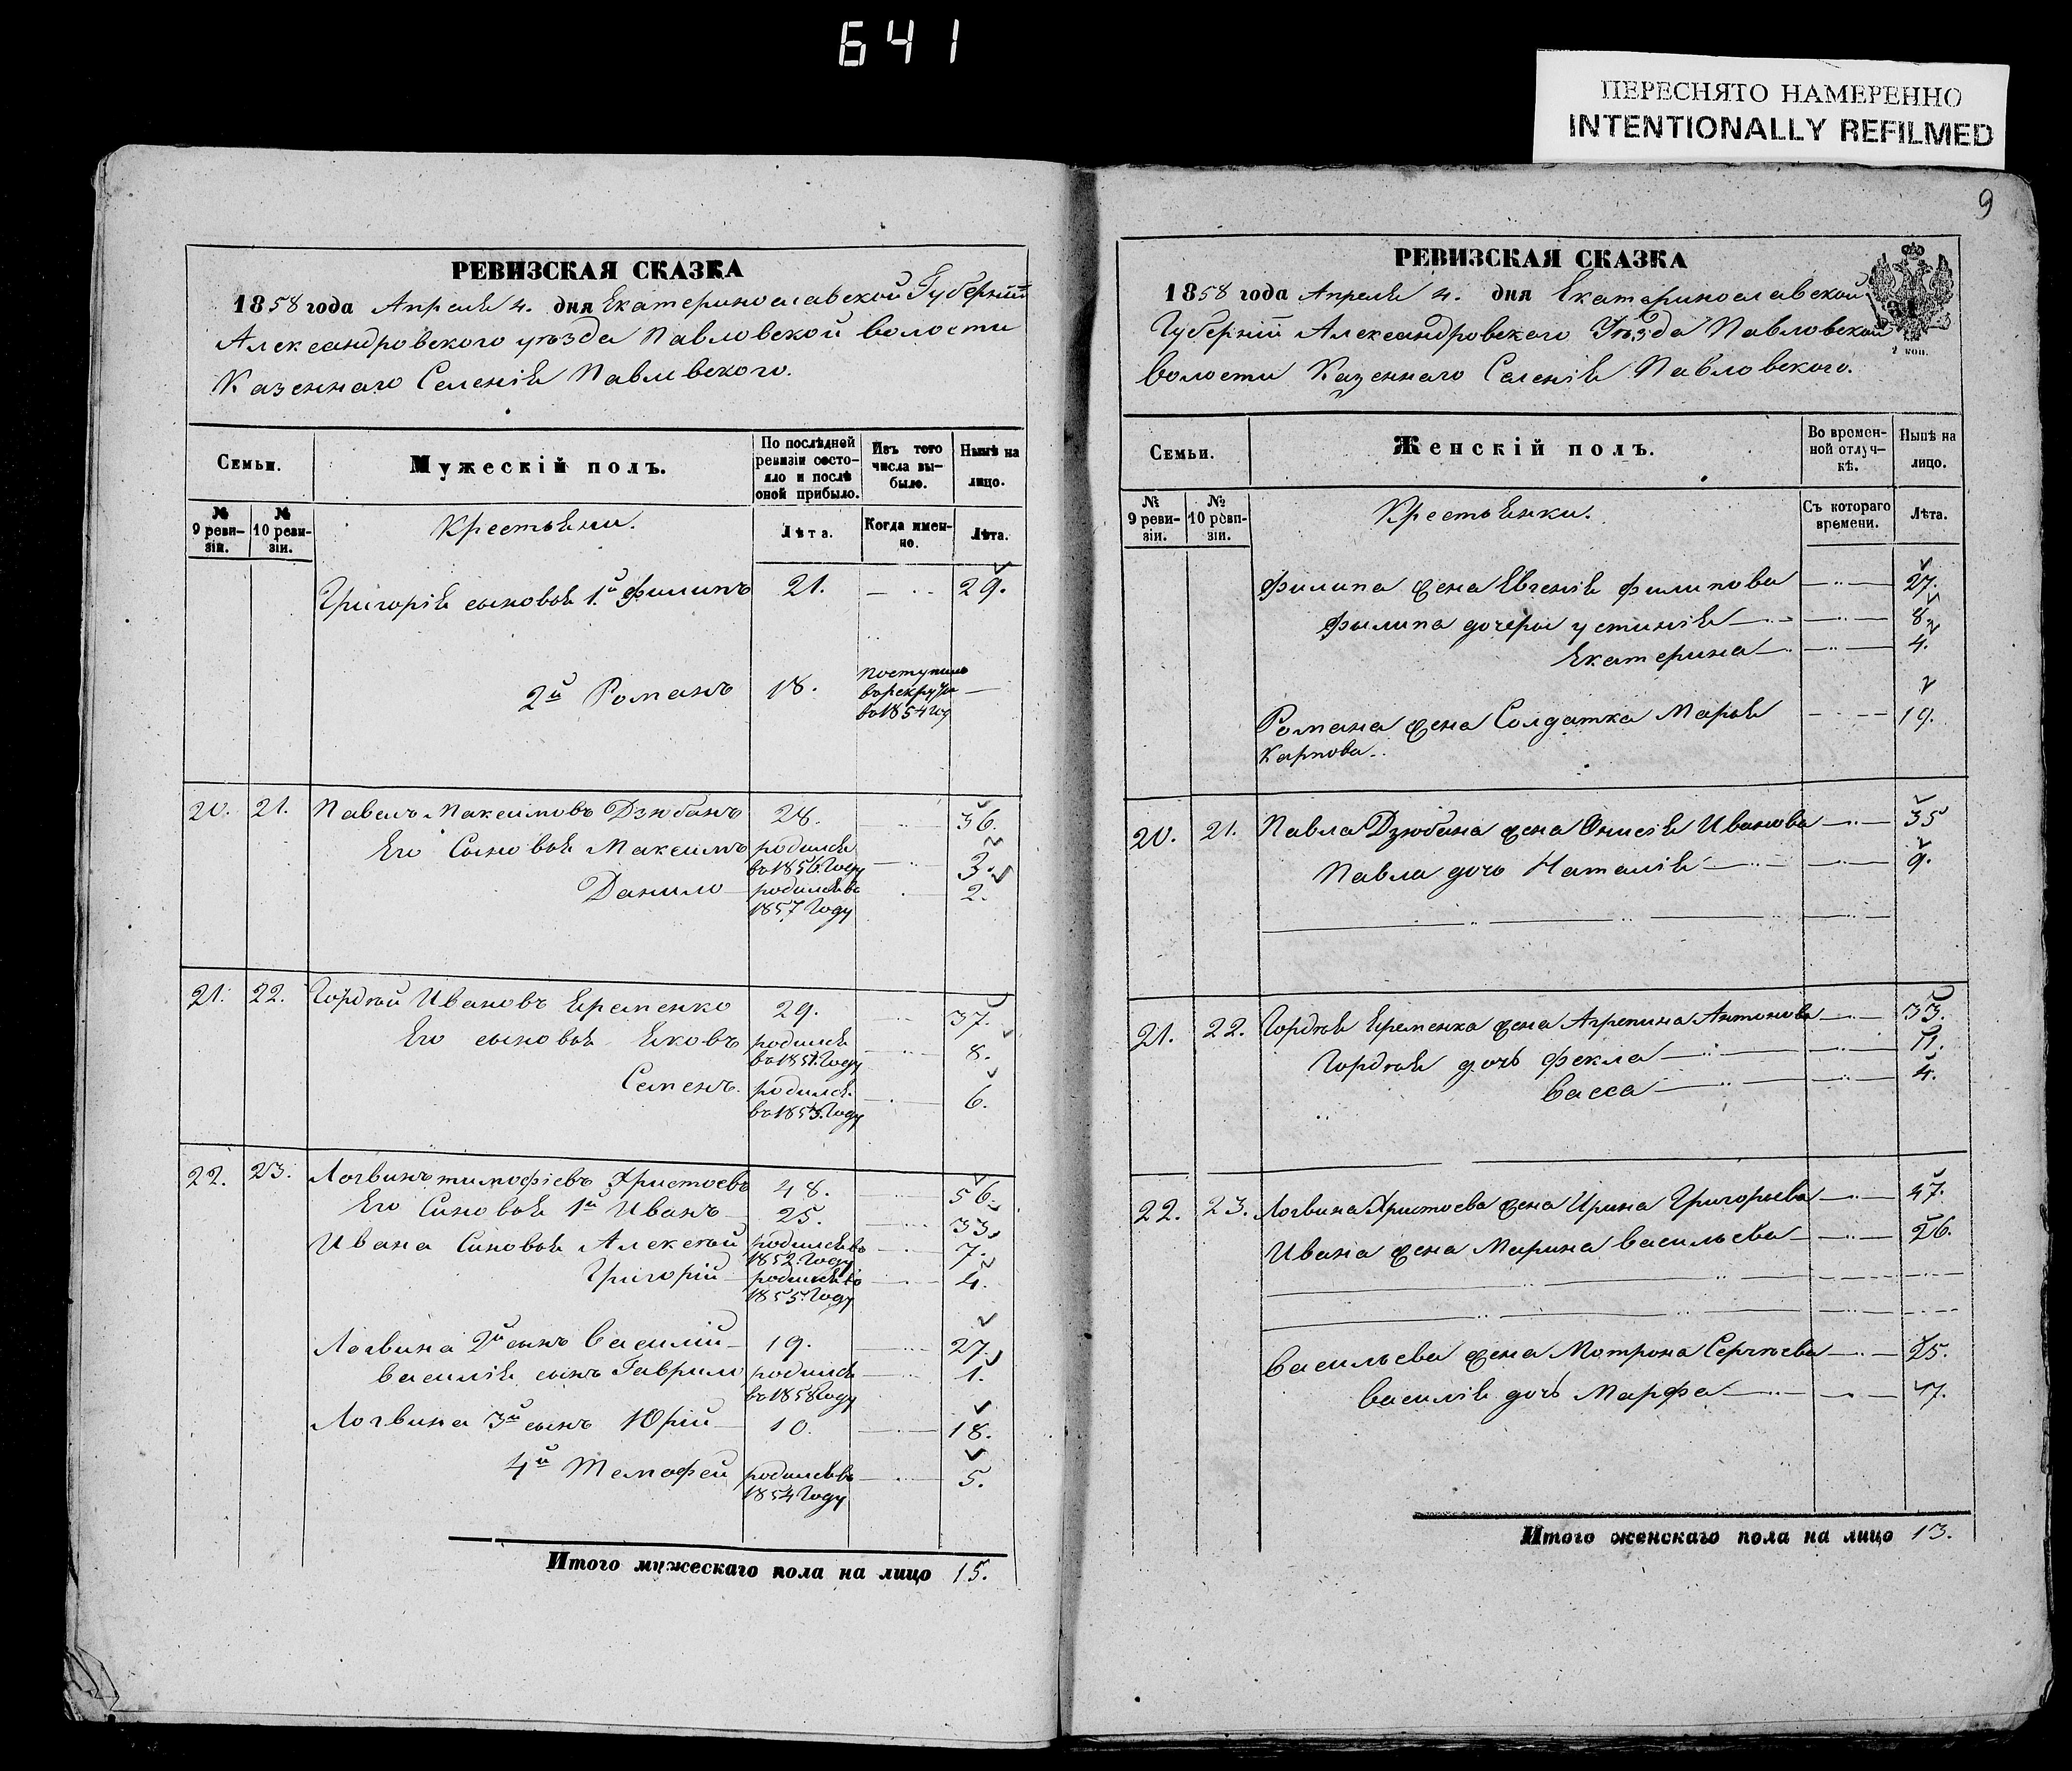 641
ПЕРЕСНЯТО НАМЕРЕННО
INTENTIONALLY REFILMED
РЕВИЗСКАЯ СКАЗКА
1858 года Апреля 4. дня Екатеринославской Губернии
Александровского уѣзда Павловской волости
Казеннаго Селенія Павловского.
Семьи.
Мужескій полъ.
По послѣдней ревизіи состояло и послѣ оной прибыло.
Изъ того числа выбыло.
Нынѣ на лицо.
№ 9 ревизіи.
№ 10 ревизіи.
Крестьяни.
Лѣта.
Когда именно.
Лѣта.
Григорія сыновья 1.й Филипъ 21. 29.
2й Романъ 18. поступилъ
в рекруты
во 1854 год
20. 21. Павелъ Максимовъ Дзюбанъ 28. 36.
Его Сыновья Максимъ родился 3.
во 1856. Году
Данило родился во 2.
1857 Году
21. 22. Гордѣй Ивановъ Еременко 29. 37.
Его сыновья Яковъ родился 8.
во 1851. Году
Семенъ. родился 6.
во 1853. Году
22. 23. Логвинъ тимофіевъ Христоевъ 48. 56.
Его Синовья 1й Иванъ 25. 33.
Ивана Синовья Алексѣй родился во 7.
1852. Году
Григорій родился во 4.
1855. Году
Логвина 2й сынъ Василій 19. 27.
василія сынъ Гаврило родился 1.
во 1858 Году
Логвина 3й сынъ Юрій 10. 18.
4й Темофей родился во 5.
1854 Году
Итого мужескаго пола на лицо 15.
9
РЕВИЗСКАЯ СКАЗКА
1858 года Апреля 4. дня Екатеринославской
Губерніи Александровского Уѣзда Павловской
волости Казеннаго Селенія Павловского.
2 коп.
Семьи.
Женскій полъ.
Во временной отлучкѣ.
Нынѣ на лицо.
№ 9 ревизіи.
№ 10 ревизіи.
Крестьянки.
Съ котораго времени.
Лѣта.
Филипа жена Евгенія Филипова 27.
Филипа дочеры устинія 8.
Екатерина 4.
Романа жена Солдатка Марья 19.
Карпова.
20. 21. Павла Дзюбана жена Онисія Иванова 35
Павла дочь Наталія 9.
21. 22. Гордѣя Еременка жена Агрепина Антонова 33.
Гордѣя дочь Фекла 11.
Васса 4.
22. 23. Логвина Христоева жена Ирина Григорьева 47.
Ивана жена Марина васильева 26.
Васильева жена Мотрона Сергѣева 25.
василія дочь Марфа
Итого женскаго пола на лицо 13.